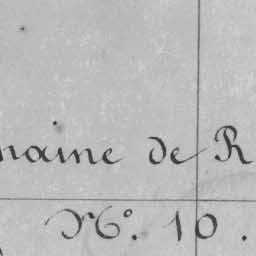 maine de R
N°. 10.